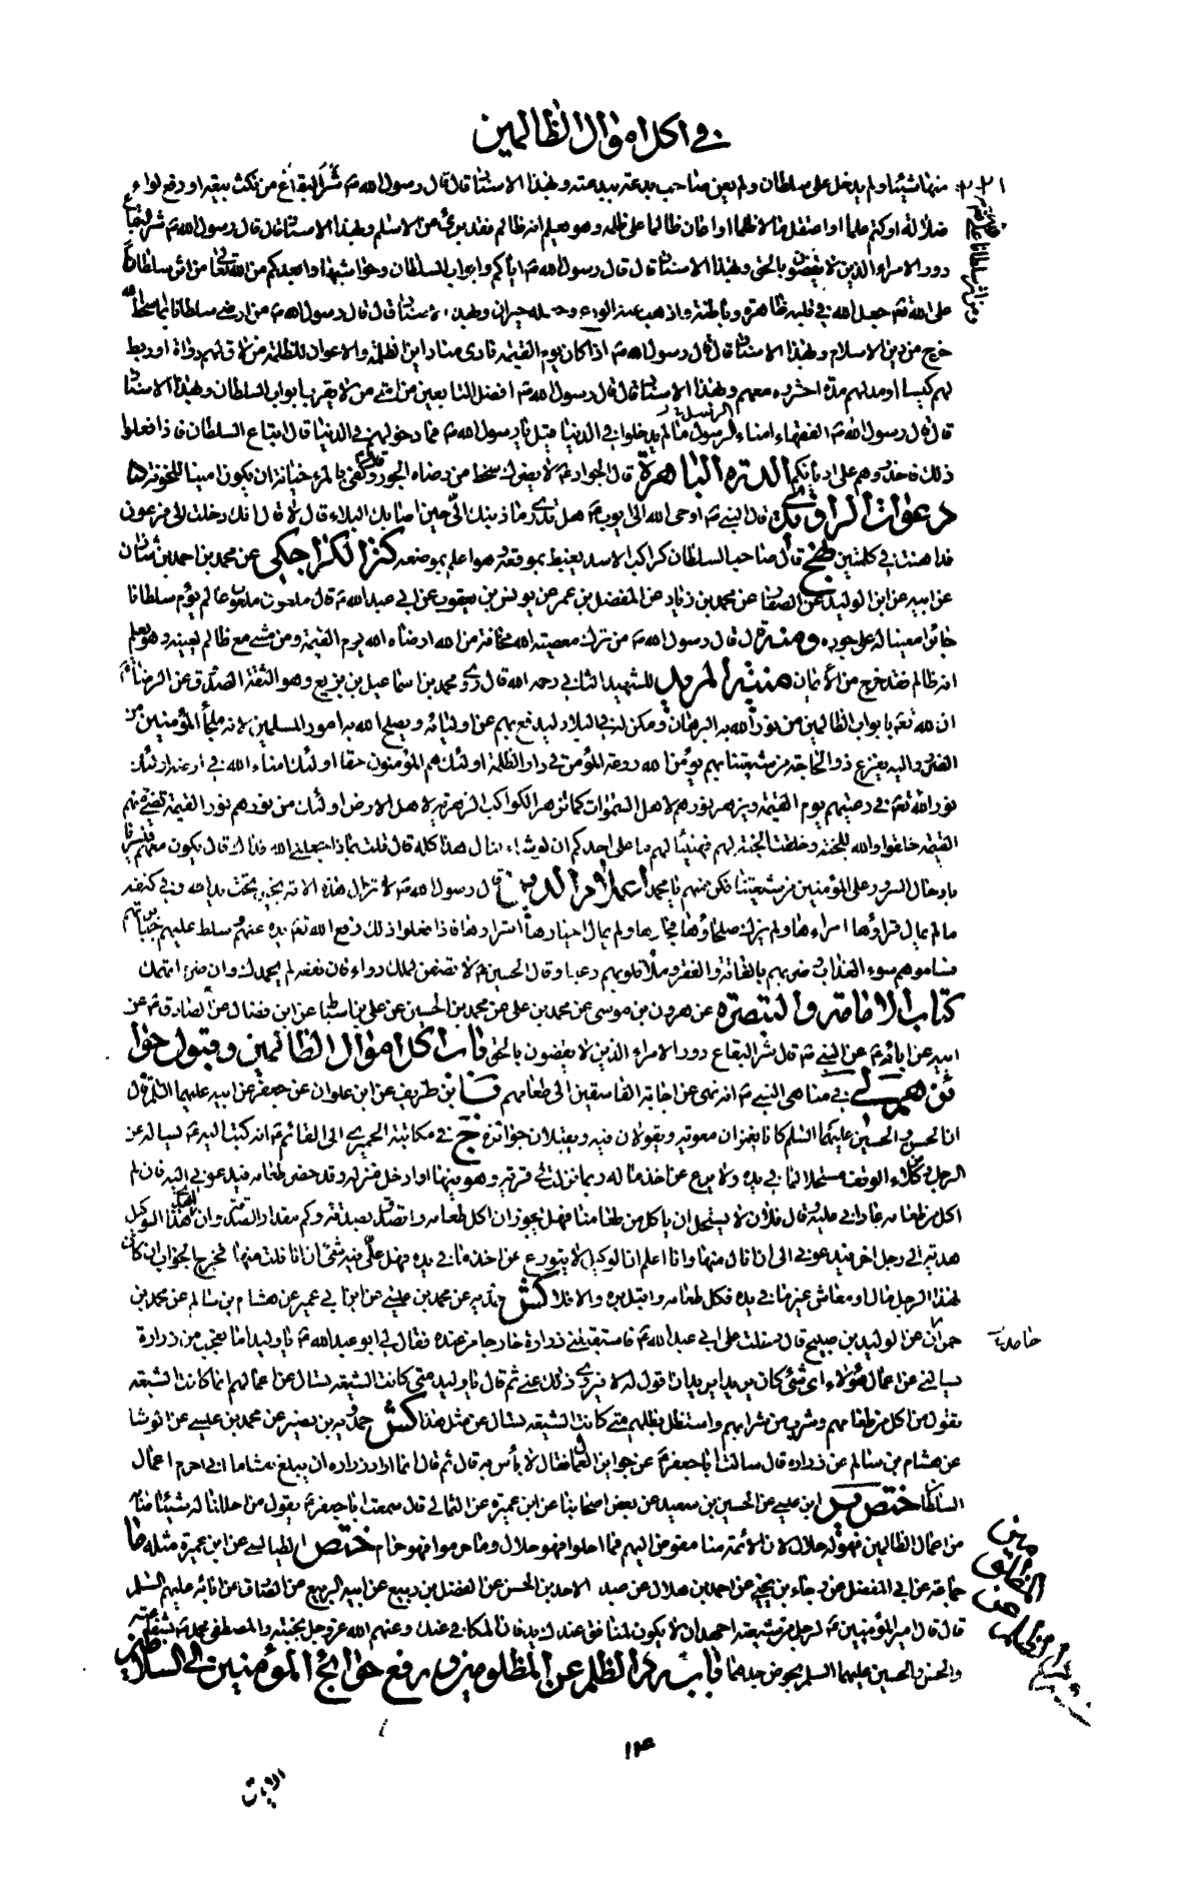 في اكل اموال الظالمين
منها شيئا ولم يدخل على سلطان ولم يعن صاحب بدعة ببدعته وبهذا الاسناد قال قال رسول الله ص شر البقاع من نكث بيعة او رفع لواء
ضلالة او كتم علما او اعتقل مالا ظلما او اعان ظالما على ظلمه وهو يعلم انه ظالم فقد برئ من الاسلام وبهذا الاسناد قال قال رسول الله ص شر البقاع
دور الامراء الذين لا يقضون بالحق وبهذا الاسناد قال قال رسول الله ص اياكم وابواب السلطان وحواشيها وابعدكم من الله تعالى من اثر سلطانا
على الله تع جعل الله في قلبه ظاهرة وباطنة واذهب عنه الورع وجعله حيران وبهذا الاسناد قال قال رسول الله ص من ارضى سلطانا بما يسخط الله
خرج من دين الاسلام وبهذا الاسناد قال قال رسول الله ص اذا كان يوم القيمة نادى مناد اين الظلمة والاعوان للظلمة من لاق لهم دواة او ربط
لهم كيسا او مد لهم مدة احشروه معهم وبهذا الاسناد قال قال رسول الله ص افضل التابعين من امتي من لا يقرب ابواب السلطان وبهذا الاسناد
قال قال رسول الله ص الفقهاء امناء الرسول ما لم يدخلوا في الدنيا قيل يا رسول الله ص فما دخولهم في الدنيا قال اتباع السلطان فاذا فعلوا
ذلك فاحذروهم على اديانكم الدرة الباهرة قال الجواد ع لا يضرك سخط من رضاه الجور وكفى بالمرء خيانة ان يكون امينا للخونة
دعوات الراوندي قال النبي ص اوحى الله الى ايوب ع هل تدري ما ذنبك الي حين اصابك البلاء قال لا قال انك دخلت الى فرعون
فداهنت في كلمتين نهج قال صاحب السلطان كراكب الاسد يغبط بموقعه وهو اعلم بموضعه كنز الكراجكي عن محمد بن احمد بن شاذان
عن ابيه عن ابن الوليد عن الصفار عن محمد بن زياد عن المفضل بن عمر عن يونس بن يعقوب عن ابي عبد الله ع قال ملعون ملعون عالم يؤم سلطانا
جائرا معينا له على جوره ومنه قال قال رسول الله ص من ترك معصية الله مخافة من الله ارضاه الله يوم القيمة ومن مشى مع ظالم ليعينه وهو يعلم
انه ظالم فقد خرج من الايمان منية المريد للشهيد الثاني رحمه الله قال روى محمد بن اسماعيل بن بزيع وهو الثقة الصدوق عن الرضا ع
ان لله تع بابواب الظالمين من نور الله به البرهان ومكن له في البلاد ليدفع بهم عن اوليائه ويصلح الله به امور المسلمين لانه ملجأ المؤمنين من
الضر واليه يفزع ذو الحاجة من شيعتنا بهم يؤمن الله روعة المؤمن في دار الظلمة اولئك هم المؤمنون حقا اولئك امناء الله في ارضه اولئك
نور الله تع في رعيتهم يوم القيمة ويزهر نورهم لاهل السموات كما تزهر الكواكب الزهرية لاهل الارض اولئك من نورهم نور القيمة تضيء منهم
القيمة خلقوا والله للجنة وخلقت الجنة لهم فهنيئا لهم ما على احدكم ان لو شاء لنال هذا كله قال قلت بماذا جعلني الله فداك قال يكون معهم فيسرنا
بادخال السرور على المؤمنين من شيعتنا فكن منهم يا محمد اعلام الدين قال رسول الله ص لا تزال هذه الامة بخير تحت يد الله وفي كنفه
ما لم يمال قراؤها امراءها ولم يزك صلحاؤها فجارها ولم يمال اخيارها اشرارها فاذا فعلوا ذلك رفع الله تع يده عنهم وسلط عليهم جبابرتهم
فساموهم سوء العذاب وضربهم بالفاقة والفقر وملأ قلوبهم رعبا وقال الحسين ع لا تصفن لملك دواء فان نفعه لم يحمدك وان ضره اتهمك
كتاب الامامة والتبصرة عن هرون بن موسى عن محمد بن علي عن محمد بن الحسين عن علي بن اسباط عن ابن فضال عن الصادق ع عن
ابيه عن ابائه ع عن النبي ص قال شر البقاع دور الامراء الذين لا يقضون بالحق باب اكل اموال الظالمين وقبول جوا
ئزهم لي في مناهي النبي ص انه نهى عن اجابة الفاسقين الى طعامهم ب ابن طريف عن ابن علوان عن جعفر عن ابيه عليهما السلام قال
ان الحسن والحسين عليهما السلام كانا يغمزان معوية ويقولان فيه ويقبلان جوائزه ج في مكاتبة الحميري الى القائم ع انه كتب اليه ع يساله عن
الرجل من وكلاء الوقف مستحلا لما في يده ولا يرع عن اخذ ماله ربما نزلت في قريته وهو فيها او ادخل منزله وقد حضر طعامه فيدعوني اليه فان لم
اكل من طعامه عاداني عليه وقال فلان لا يستحل ان ياكل من طعامنا فهل يجوز ان اكل طعامه واتصدق بصدقة وكم مقدار الصدقة وان اهدى هذا الوكيل
هدية الى رجل اخر فيدعوني الى ان انال منها وانا اعلم ان الوكيل لا يتورع عن اخذ ما في يده فهل علي فيه شيء ان انا نلت منها فخرج الجواب ان كان
لهذا الرجل مال او معاش غير ما في يده فكل طعامه واقبل بره والا فلا كش حمدويه عن محمد بن عيسى عن ابن ابي عمير عن هشام بن سالم عن محمد بن
حمران عن الوليد بن صبيح قال دخلت على ابي عبد الله ع فاستقبلني زرارة خارجا من عنده فقال لي ابو عبد الله ع يا وليد اما تعجب من زرارة
يسالني عن اعمال هؤلاء اي شيء كان يريد ايريد ان اقول له لا فيروي ذلك عني ثم قال يا وليد متى كانت الشيعة تسال عن اعمالهم انما كانت الشيعة
تقول من اكل من طعامهم وشرب من شرابهم واستظل بظلهم متى كانت الشيعة تسال عن مثل هذا كش حمدويه بن نصير عن محمد بن عيسى عن الوشا
عن هشام بن سالم عن زرارة قال سالت ابا جعفر ع عن جوايز العمال فقال لا باس به قال ثم قال انما اراد زرارة ان يبلغ هشاما اني احرم اعمال
السلطان ختص ير ابن عيسى عن الحسين بن سعيد عن بعض اصحابنا عن ابن عميرة عن الثمالي قال سمعت ابا جعفر ع يقول من احللنا له شيئا اصابه
من اعمال الظالمين فهو له حلال لان الائمة منا مفوض اليهم فما احلوا فهو حلال وما حرموا فهو حرام ختص الطيالسي عن ابن عميرة مثله ما
جماعة عن ابي المفضل عن رجاء بن يحيى عن احمد بن هلال عن عبد الاحد بن الحسن عن الفضل بن ربيع عن ابيه الربيع عن الصادق عن ابائه عليهم السلام
قال قال امير المؤمنين ع لرجل من شيعته اجهد ان لا يكون لمنافق عندك يد فان المكافي عنك وعنهم الله عز وجل بجنته والمصطفى محمد ص بشفاعته
والحسن والحسين عليهما السلام بحوض جدهما باب رد الظلم عن المظلومين ورفع حوائج المؤمنين الى السلاطين
١٢٤
الايات